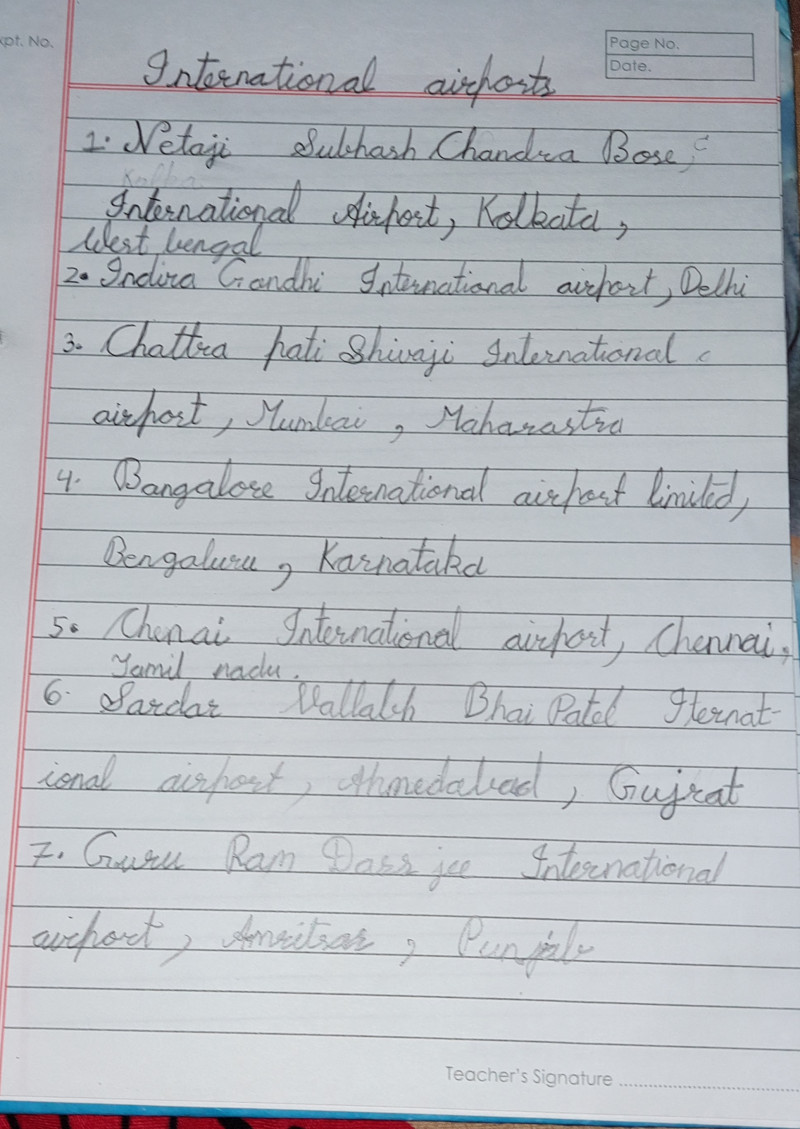 xpt. No.
Page No.
Date.
International airports
1. Netaji Subhash Chandra Bose,
International Airport, Kolkata,
West bengal
2. Indira Gandhi International airport, Delhi
3. Chattra pati Shivaji International
airport, Mumbai, Maharastra
4. Bangalore International airport limited,
Bengaluru, Karnataka
5. Chenai International airport, Chennai,
Tamil nadu.
6. Sardar Vallabh Bhai Patel Iternat-
ional airport, Ahmedabad, Gujrat
7. Guru Ram Dass jee International
airport, Amritsar, Punjab
Teacher's Signature